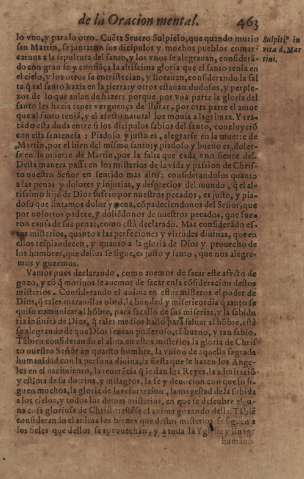 de la Oracion mental. 463
lo vno, y para lo otro. Cuẽta Seuero Sulpicio, que quando murio
san Martin, se juntaron sus dicipulos y muchos pueblos comar-
canos a la sepultura del santo, y los vnos se alegrauan, considerã-
do con gran fe y la altissima gloria que el santo tenia en
el cielo, y los otros se entristecian, y llorauan, considerando la fal
ta que al santo hazia en la tierra y otros estauan dudosos, y perple-
xos de lo que auian de hazer: porque por vna parte la gloria del
santo les hazia tener verguença de llorar, por otra parte el amor
que al santo tenia, y el afecto natural los mouia a lagrimas. Y tra-
tada esta duda entre los dicipulos sabios del santo, concluyerõ
con esta sentencia: Piadoso y justo es, alegrarse en la muerte de
Martin, por el bien del mismo santo; y piadoso y bueno es, doler-
se en la muerte de Martin, por la falta que cada vno siente del.
Desta manera passa en los misterios de la vida y passion de Chris-
to nuestro Señor en sentido mas alto: considerandolos quanto
a las penas y dolores y injurias, y desprecios del mundo, q̃ el al-
tissimo hijo de Dios sufrio por nuestros pecados, es justo, y pia-
doso que sintamos dolor y pena, cõpadeciendonos del Señor, que
por nosotros padece, y doliẽdonos de nuestros pecados, que fue-
ron causa de su pena, como està declarado. Mas considerando es-
tos misterios, quanto a las perfecciones y virtudes diuinas, que en
ellos resplandecen, y quanto a la gloria de Dios y prouecho de
los hombres, que dellos se sigue, es justo y santo, que nos alegre-
mos y gozemos.
Vamos pues declarando, como auemos de sacar este afecto de
gozo, y cõ q̃ motiuos le auemos de sacar en la cõsideraciõ destos
misterios. Considerando el anima en estos misterios el poder de
Dios, q̃ tales marauillas obrò, la bondad y misericordia quanto se
quiso comunicar al hõbre, para sacallo de sus miserias, y la sabidu
ria infinita de Dios, q̃ tales medios hallò para saluar al hõbre, està
se alegrando de que Dios sea tan poderoso, tã bueno, y tan sabio.
Tãbien considerando el alma en estos misterios, la gloria de Chris
to nuestro Señor en quanto hombre, la vnion de aquella sagrada
humanidad con la persona diuina, la fiesta que le hazen los Ange-
les en el nacimiento, la reuerẽcia q̃ le dan los Reyes, la admiraciõ
y estima de su dotrina, y milagros, la fe y deuocion con que lo si-
guen muchos, la gloria de la resurreccion, la magestad de la subida
a los cielos, y todos los demas misterios, en que se descubre algu-
na cosa gloriosa de Christo, estàse el anima gozando della. Tãbiẽ
consideran en el anima los bienes que destos misterios se siguen a
los fieles que dellos se aprouechan, y a toda la Yglesia y linage
humano
Sulpiti<sup>9</sup> in
vita d. Mar
tini.